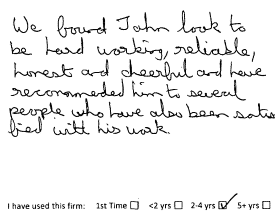 We found John look to
be hard working, reliable,
honest and cheerful and have
recommended him to several
people who have also been satis
fied with his work.
I have used this firm: 1st Time <2 yrs 2-4 yrs 5+ yrs